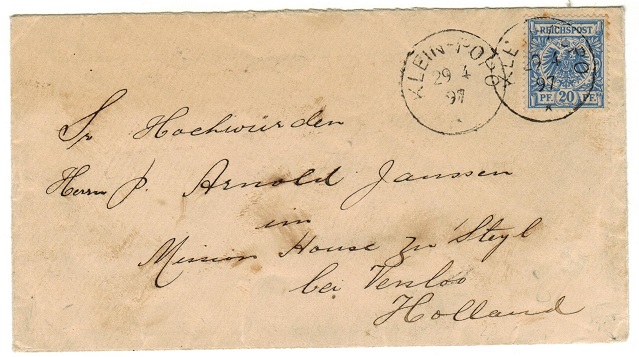 KLEIN-POPO
29 4
97
*
KLEIN-POPO
29 4
97
*
REICHSPOST
PF 20 PF
Sr Hochwürden
Herrn P. Arnold Janssen
im
Mission House zu Steyl
bei Venloo
Holland